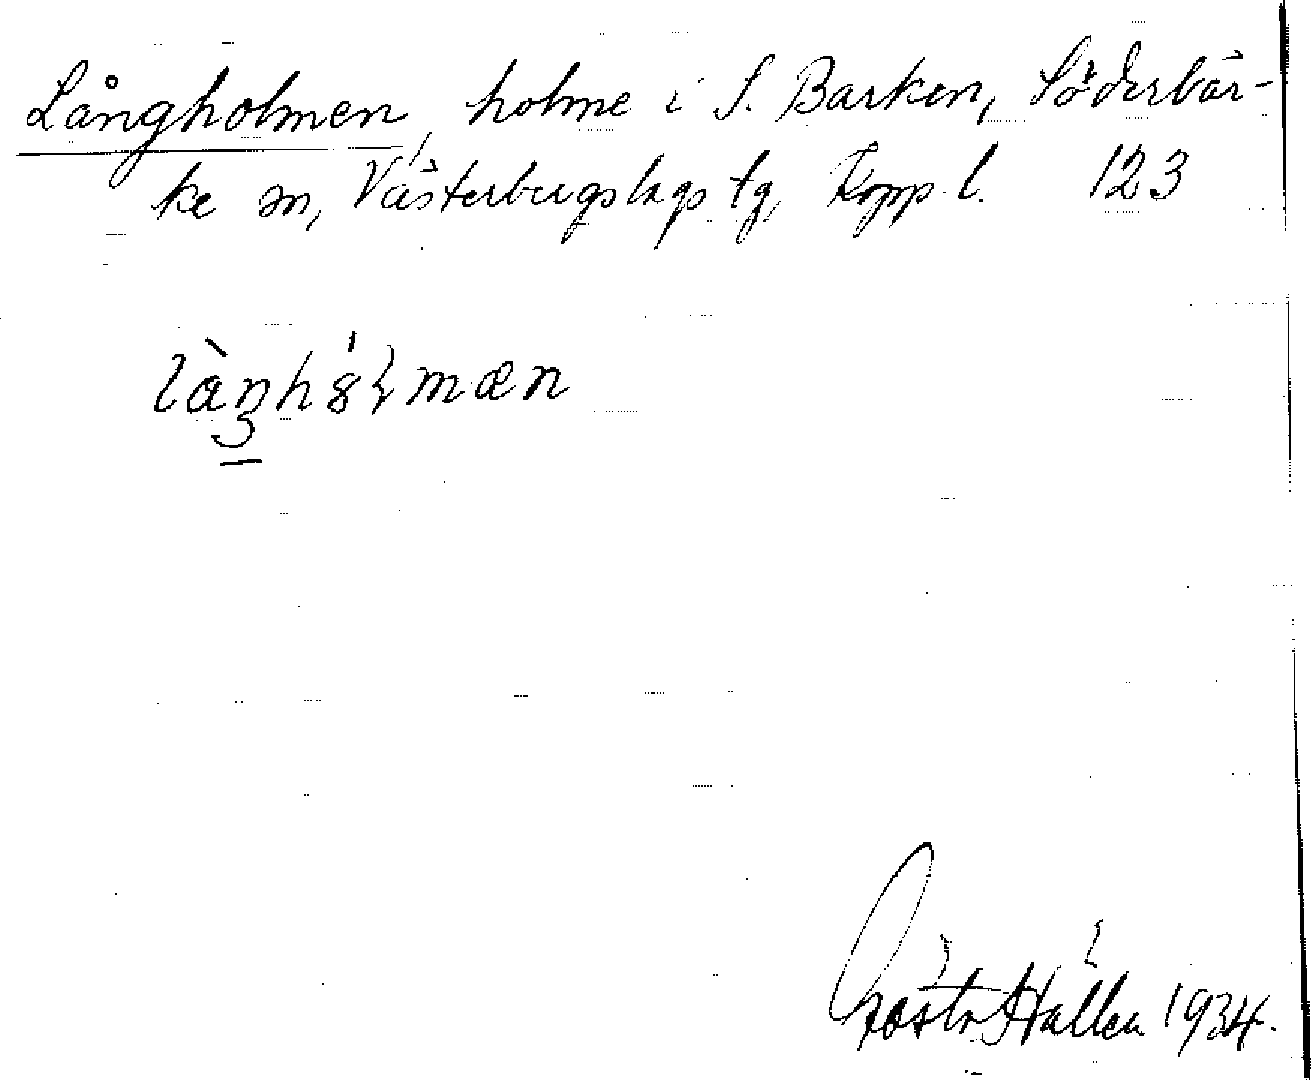 Långholmen, holme i S. Barken, Söderbär-
ke sn, Västerbergslags tg, Kopp. l. 123
Gösta Hallén 1934.